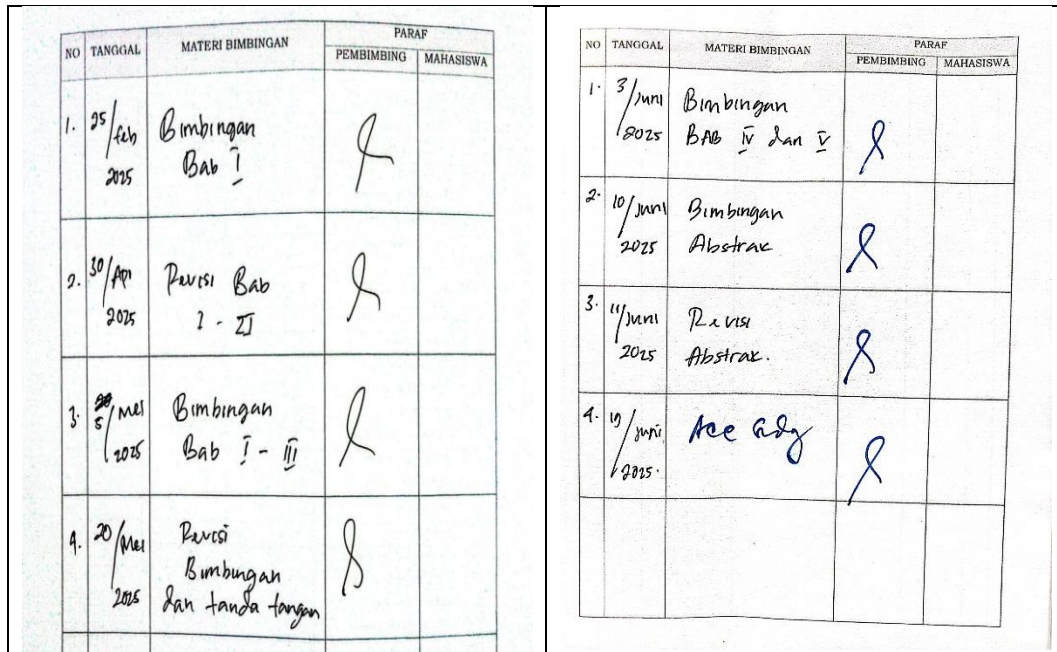 NO TANGGAL MATERI BIMBINGAN PARAF
PEMBIMBING MAHASISWA
1. 25/feb 2025 Bimbingan
Bab I
2. 30/Apr 2025 Revisi Bab
I - II
3. 5/Mei 2025 Bimbingan
Bab I - III
4. 20/Mei 2025 Revisi
Bimbingan
dan tanda tangan
NO TANGGAL MATERI BIMBINGAN PARAF
PEMBIMBING MAHASISWA
1. 3/Juni 2025 Bimbingan
BAB IV dan V
2. 10/Juni 2025 Bimbingan
Abstrak
3. 11/Juni 2025 Revisi
Abstrak.
4. 19/Juni 2025. Acc